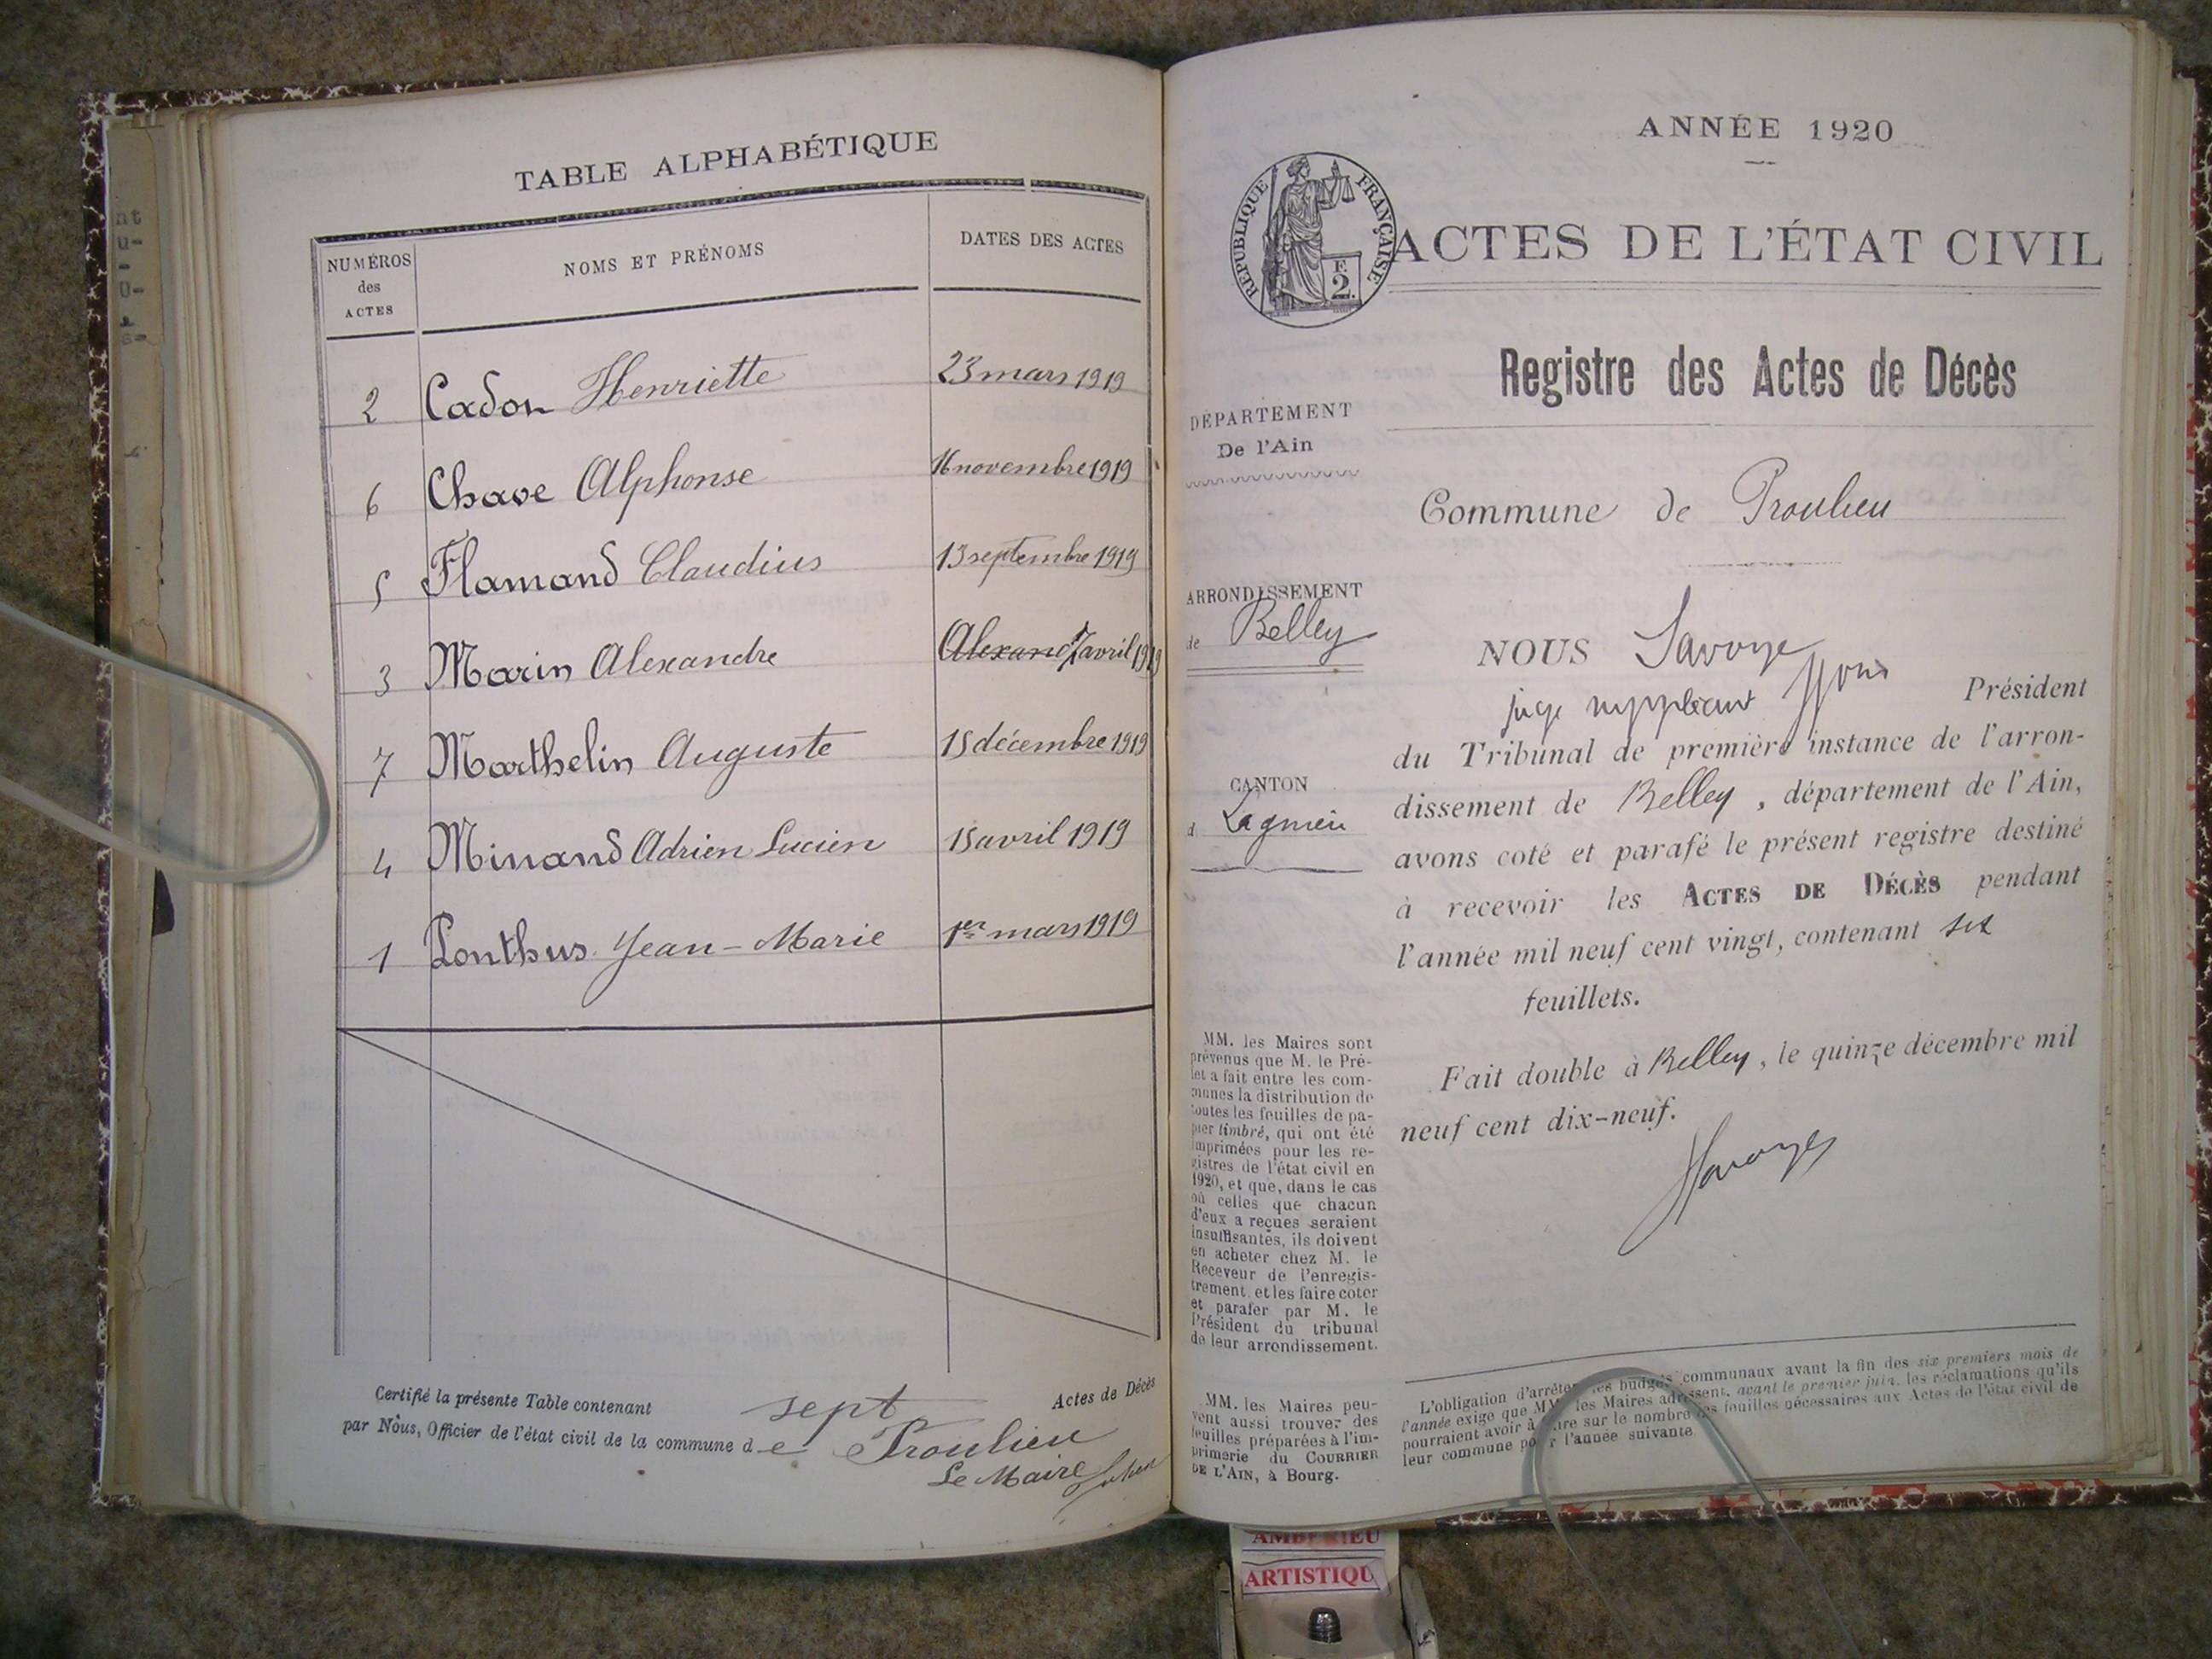 TABLE ALPHABÉTIQUE
NUMÉROS
des
ACTES
NOMS ET PRÉNOMS
DATES DES ACTES
2 Cadon Henriette 23 mars 1919
6 Chave Alphonse 16 novembre 1919
5 Flamand Claudius 13 septembre 1919
3 Marin Alexandre Alexand 7 avril 1919
7 Marthelin Auguste 15 décembre 1919
4 Minand Adrien Lucien 15 avril 1919
1 Ponthus Jean-Marie 1er mars 1919
Certifié la présente Table contenant sept Actes de Décès
par Nous, Officier de l'état civil de la commune de Proulieu
Le Maire
ANNÉE 1920
RÉPUBLIQUE FRANÇAISE
F.
2.
ACTES DE L'ÉTAT CIVIL
Registre des Actes de Décès
DÉPARTEMENT
De l'Ain
Commune de Proulieu
ARRONDISSEMENT
de Belley
NOUS Savoye
juge suppléant Président
du Tribunal de première instance de l'arron-
dissement de Belley, département de l'Ain,
avons coté et parafé le présent registre destiné
à recevoir les ACTES DE DÉCÈS pendant
l'année mil neuf cent vingt, contenant six
feuillets.
Fait double à Belley, le quinze décembre mil
neuf cent dix-neuf.
Savoye
CANTON
d Lagnieu
MM. les Maires sont
prévenus que M. le Pré-
fet a fait entre les com-
munes la distribution de
toutes les feuilles de pa-
pier timbré, qui ont été
imprimées pour les re-
gistres de l'état civil en
1920, et que, dans le cas
où celles que chacun
d'eux a reçues seraient
insuffisantes, ils doivent
en acheter chez M. le
Receveur de l'enregis-
trement, et les faire coter
et parafer par M. le
Président du tribunal
de leur arrondissement.
MM. les Maires peu-
vent aussi trouver des
feuilles préparées à l'im-
primerie du COURRIER
DE L'AIN, à Bourg.
L'obligation d'arrêter les budgets communaux avant la fin des six premiers mois de
l'année exige que MM. les Maires adressent, avant le premier juin, les réclamations qu'ils
pourraient avoir à faire sur le nombre des feuilles nécessaires aux Actes de l'état civil de
leur commune pour l'année suivante
AMBÉRIEU
ARTISTIQU